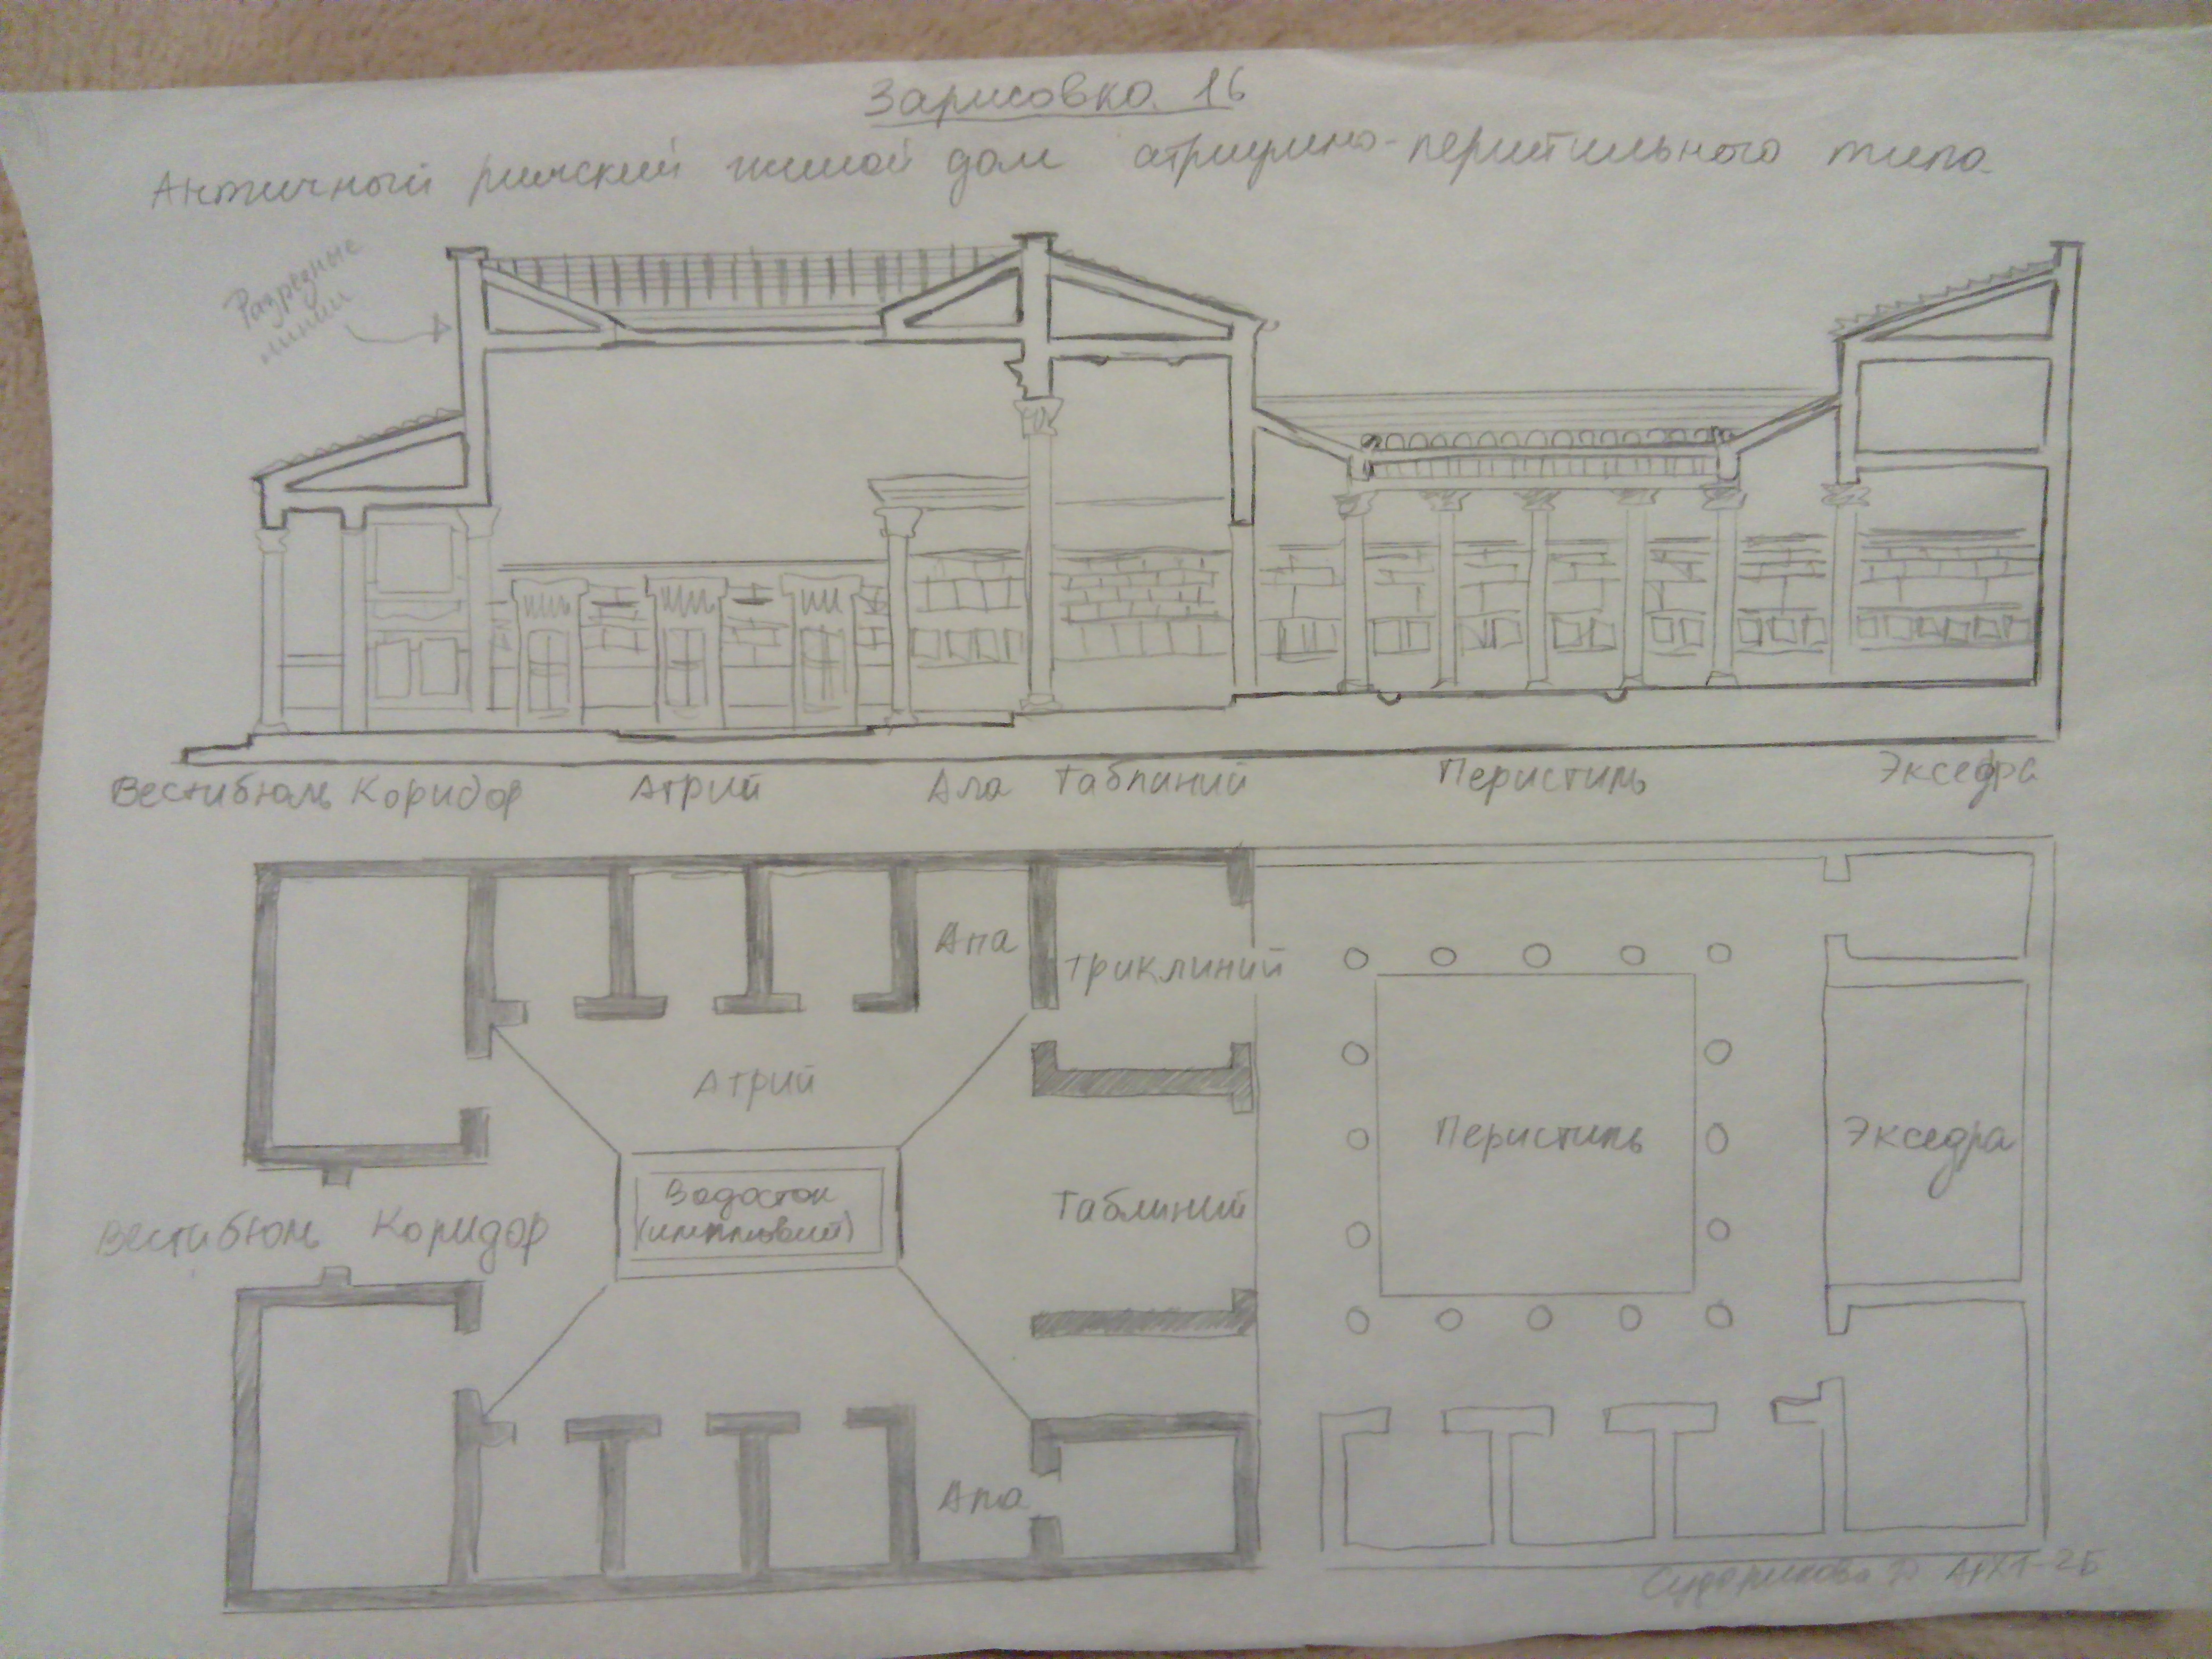 Зарисовка 16
Античный римский жилой дом атриумно-перистильного типа
Разрезные
линии
Вестибюль Коридор Атрий Ала Таблиний Перистиль Экседра
Ала
Триклиний
Атрий
Перистиль
Экседра
Водосток
(имплювий)
Таблиний
Вестибюль Коридор
Ала
АРХТ-2Б